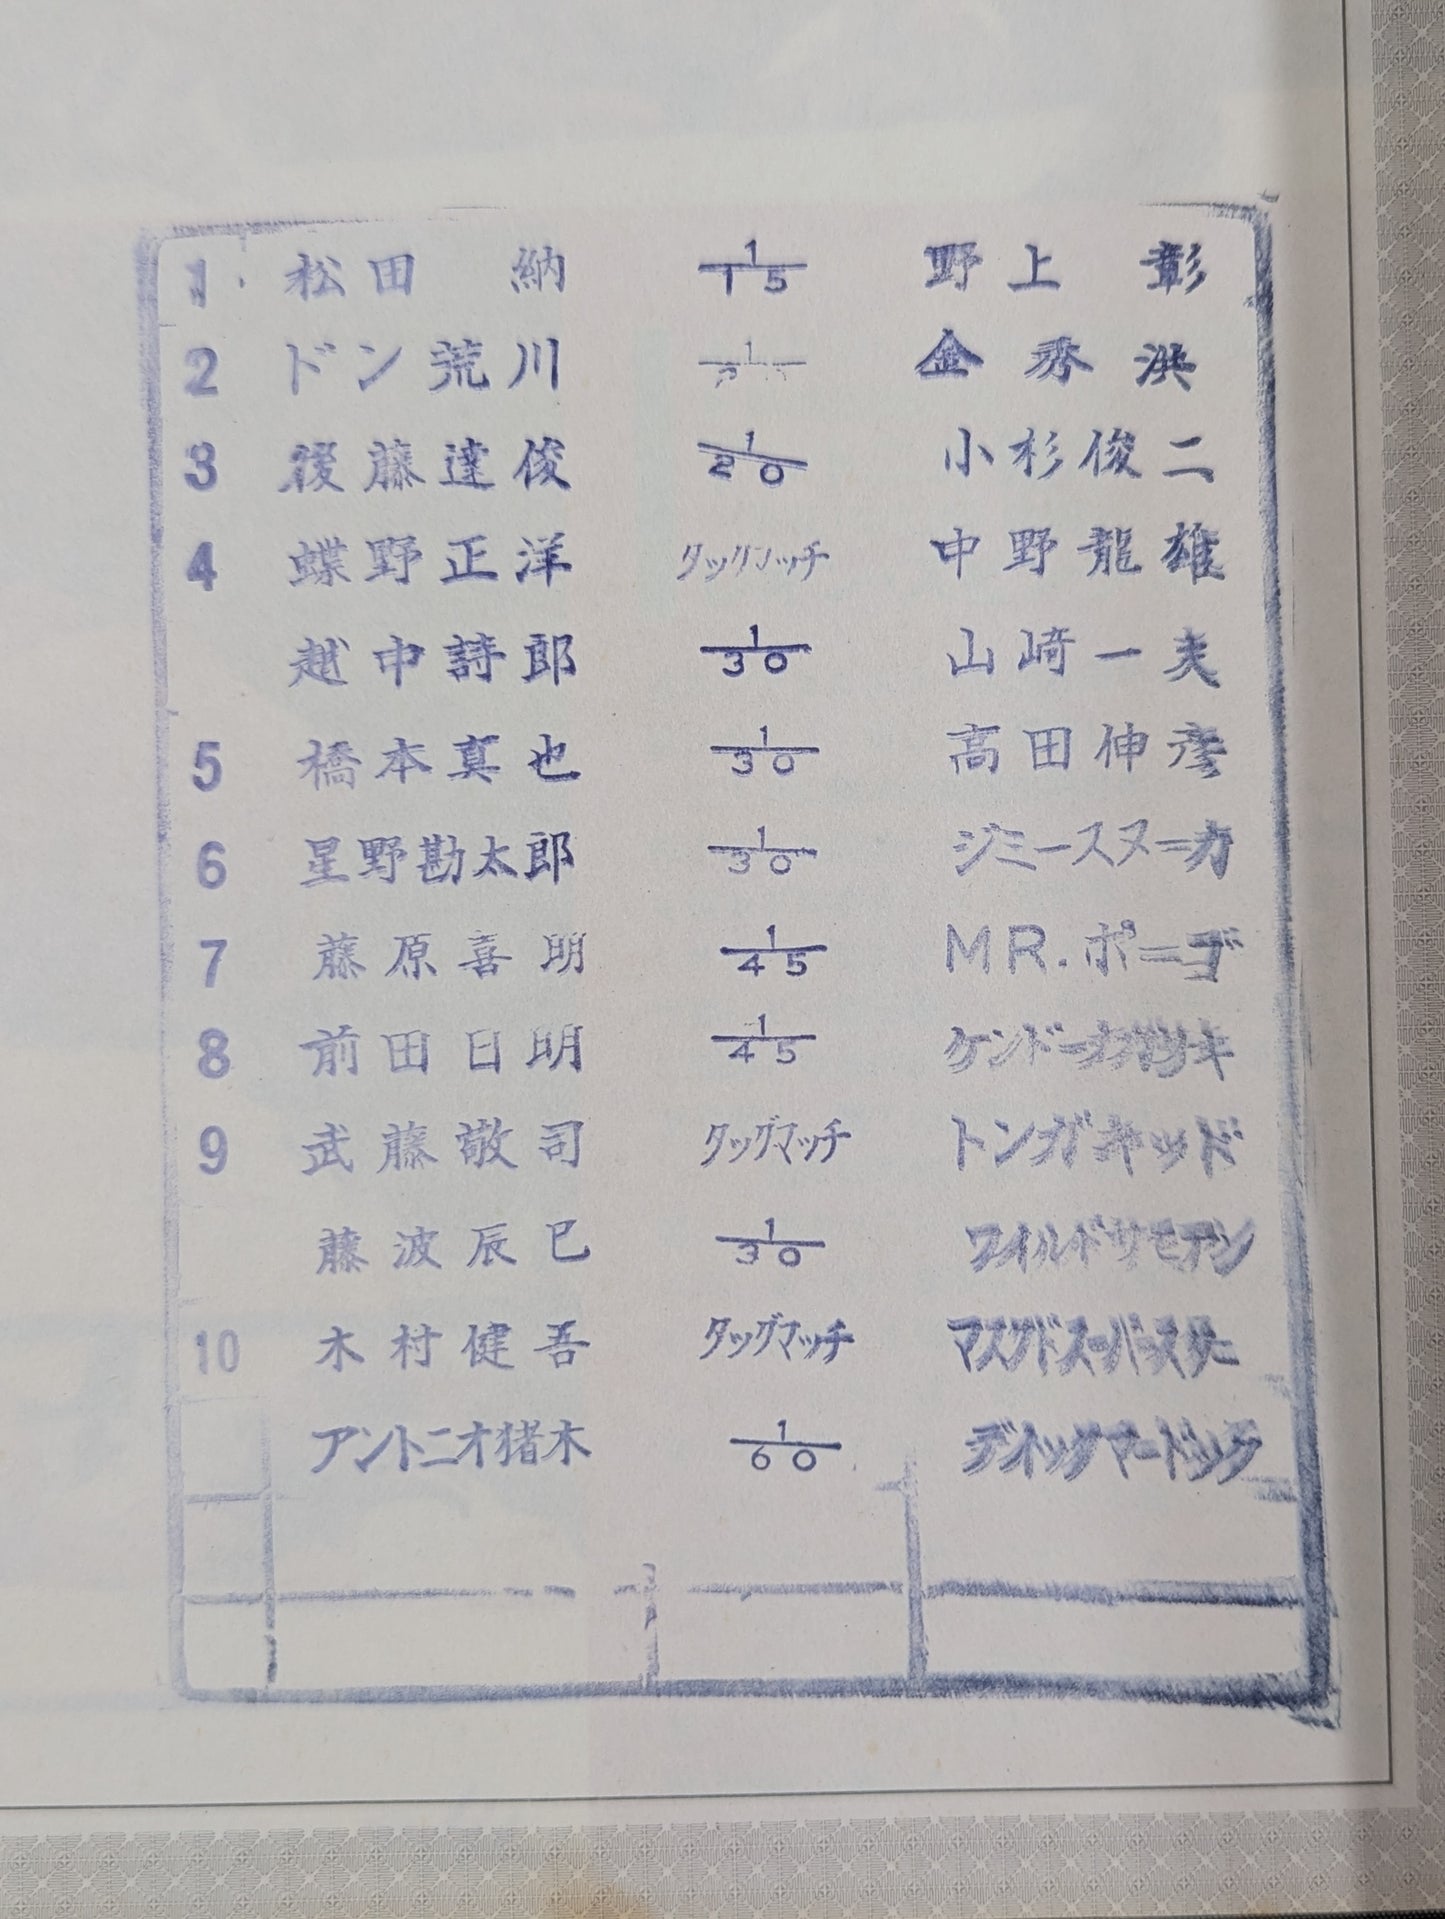 1 松田 納 1/15 野上 彰
2 ドン荒川 1/ 金秀洪
3 後藤達俊 1/20 小杉俊二
4 蝶野正洋 タッグマッチ 中野龍雄
越中詩郎 1/30 山崎一夫
5 橋本真也 1/30 高田伸彦
6 星野勘太郎 1/30 ジミースヌーカ
7 藤原喜明 1/45 MR.ポーゴ
8 前田日明 1/45 ケンドーナガサキ
9 武藤敬司 タッグマッチ トンガキッド
藤波辰巳 1/30 ワイルドサモアン
10 木村健吾 タッグマッチ マスクドスーパースター
アントニオ猪木 1/60 ディックマードック